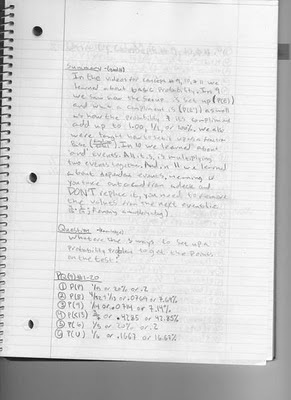 Summary
In the videos for concepts # 9, 10, & 11 we
learned about basic Probability. In 9
we saw how the format is set up (P(E))
and what a compliment is (P(E')) as well
as how the probability & its compliment
add up to 1.00, 1/1, or 100%. We also
were taught how to set up as a fraction
In 10 we learned about
"and" events. is multiplying
two events together. And in 11 we learned
about dependent events, meaning if
you take out a card from a deck and
DON'T replace it, you need to remove
the values from the next event
Question
What are the 3 ways to set up a
Probability Problem to get the Points
on the test?
PQ #1-20
① P(P) 1/5 or 20% or .2
② P(8) 4/52 1/13 or .0769 or 7.69%
③ P(4) 1/14 or .0714 or 7.14%
④ P(≤13) or .4285 or 42.85%
⑤ P(6) 1/5 or 20% or .2
⑥ P(U) 1/6 or .1667 or 16.67%